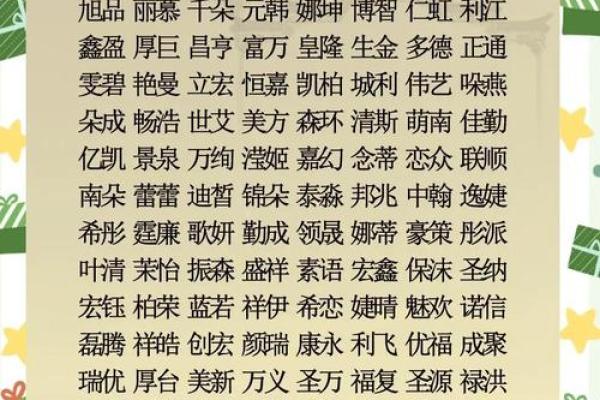 旭品 丽慕 千朵 元韩 娜坤 博智 仁虹 利江
鑫盈 厚巨 昌亨 富万 皇隆 生金 多德 正通
雯碧 艳曼 立宏 恒嘉 凯柏 城利 伟艺 哚燕
朵成 畅浩 世艾 美方 森环 清斯 萌南 佳勤
亿凯 景泉 万绚 滢姬 嘉幻 念蒂 恋众 联顺
南朵 蕾蕾 迪皙 锦朵 泰淼 邦兆 中翰 逸婕
希彤 霆廉 歌妍 勤成 领晟 娜蒂 豪策 彤派
叶清 茉怡 振森 盛祥 素语 宏鑫 保沫 圣纳
宏钰 柏荣 蓝若 祥伊 希恋 婕晴 魅欢 诺信
磊腾 祥皓 创宏 颜瑞 康永 利飞 优福 成聚
瑞优 厚台 美新 万义 圣万 福复 圣源 禄洪